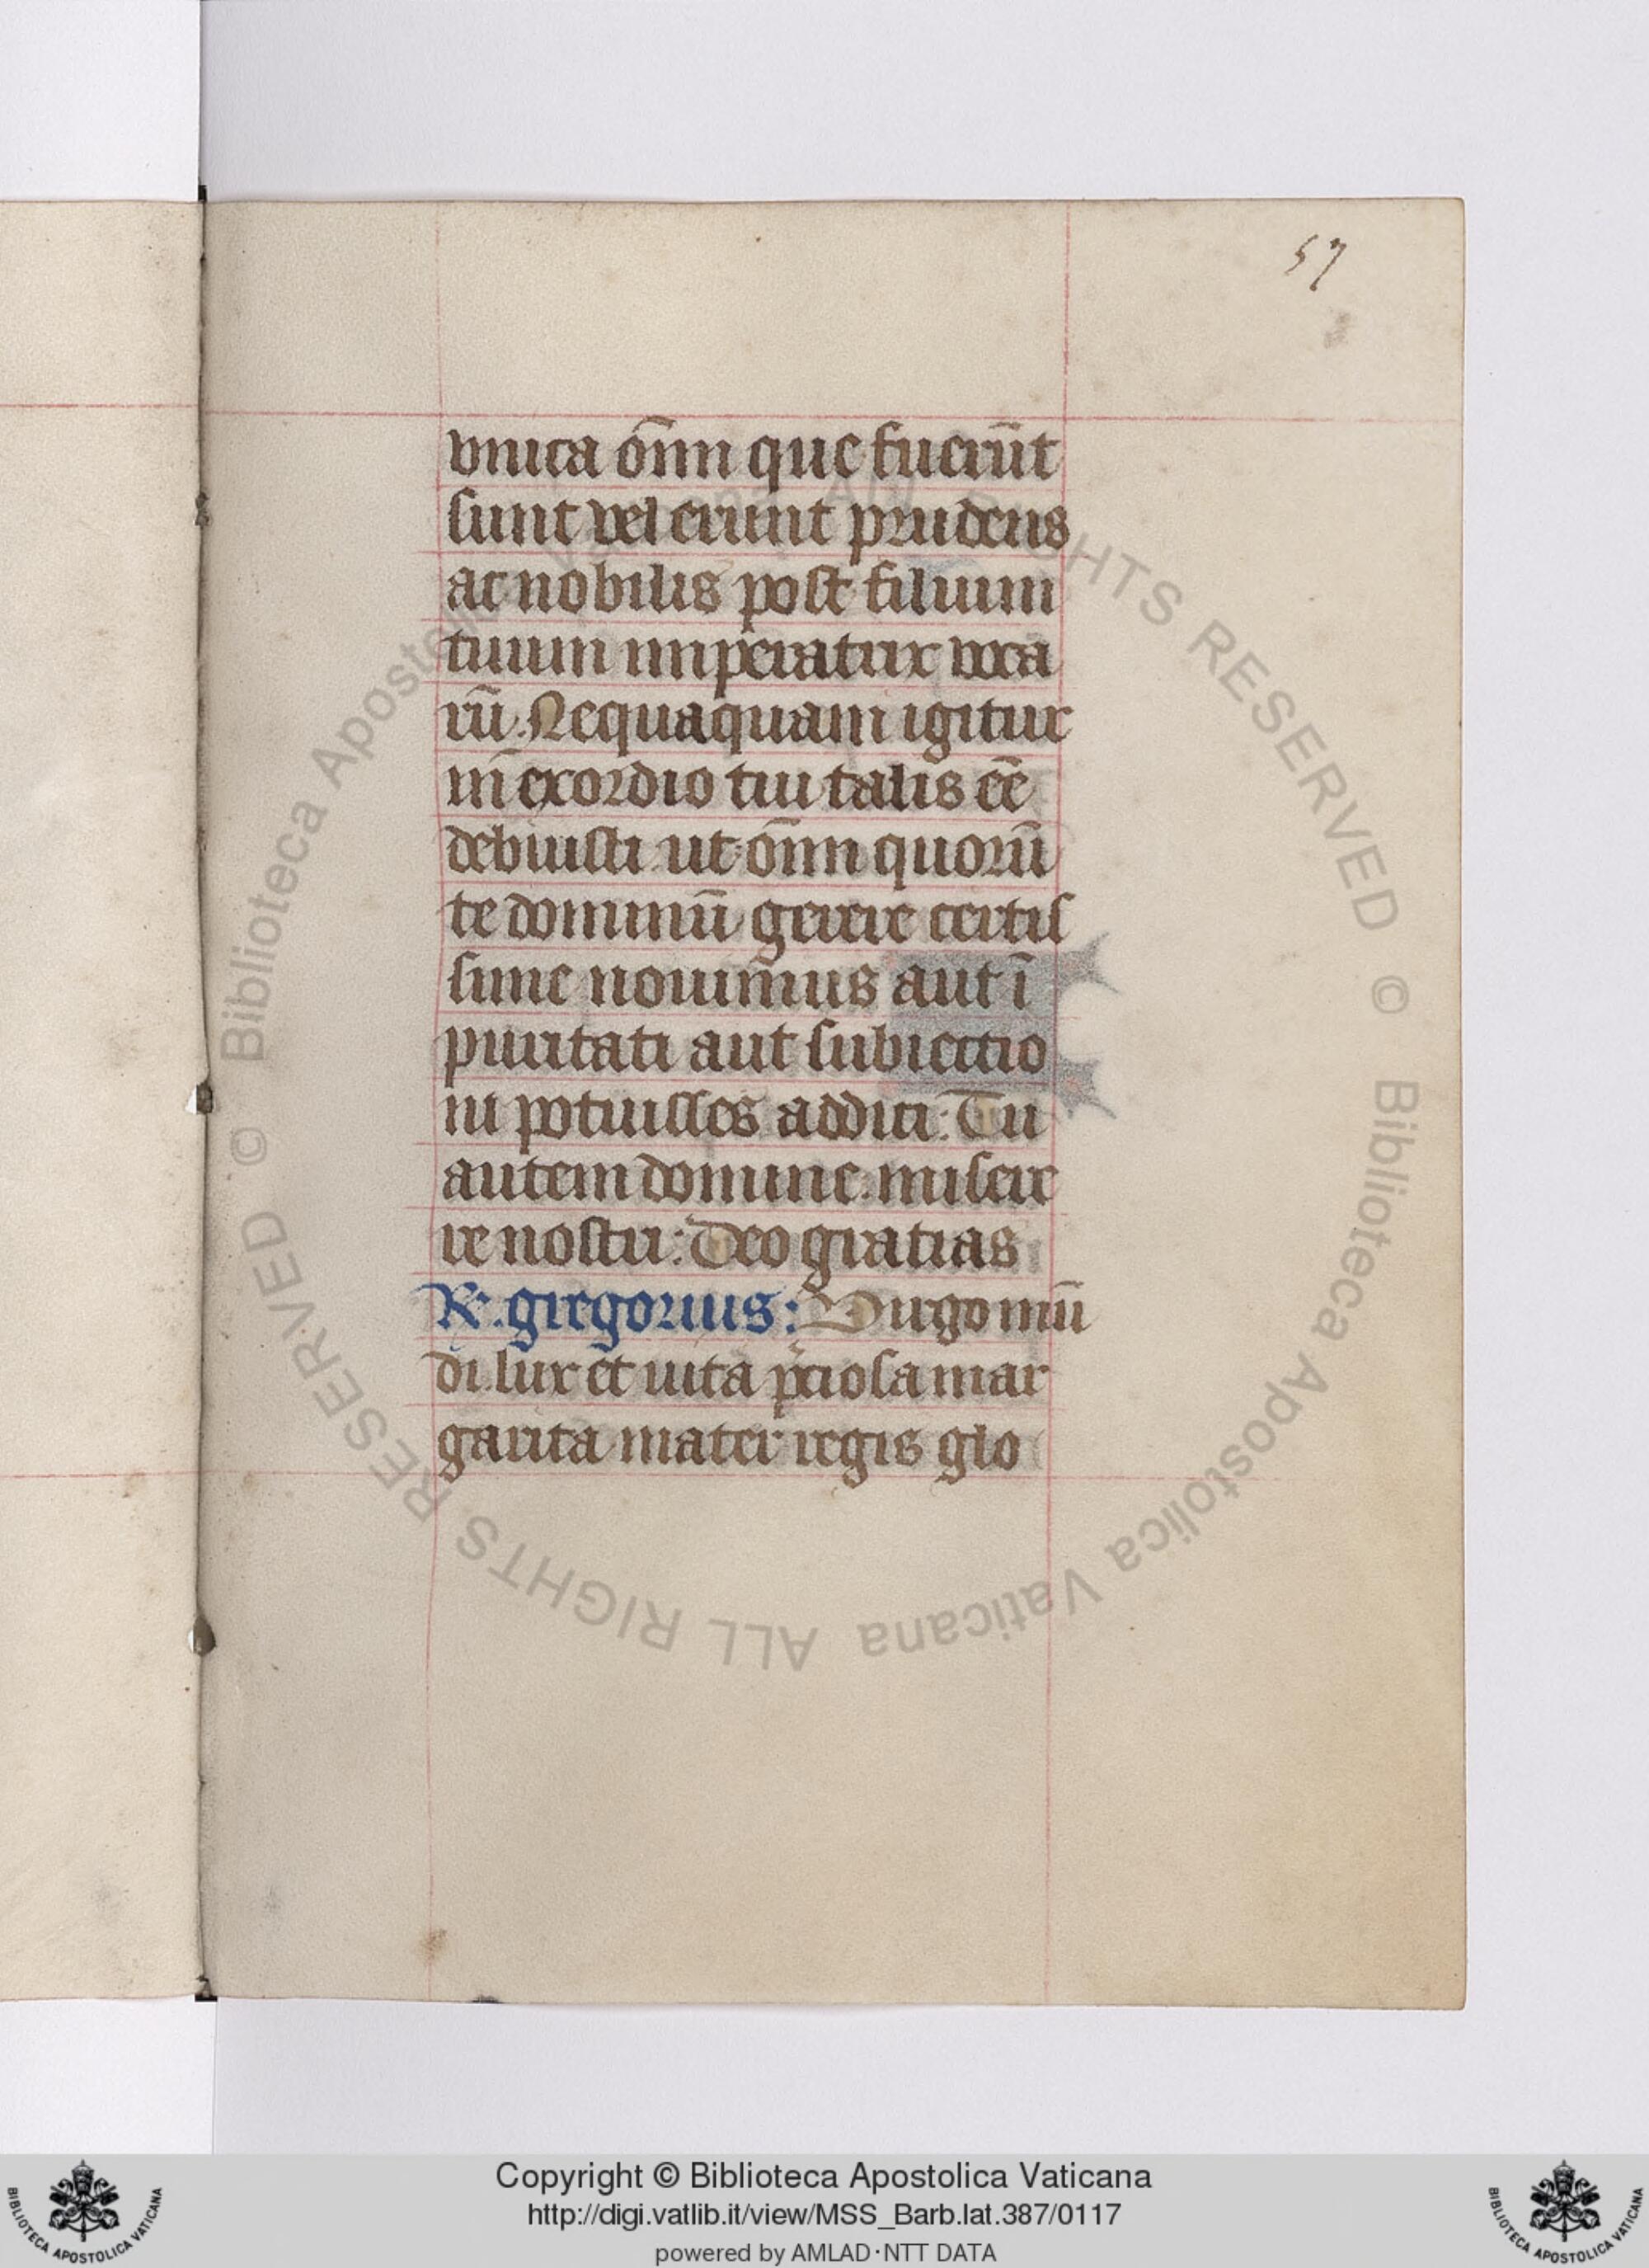 57
vnica om̄n que fuerūt
sunt vel erunt prudens
ac nobilis post filium
tuum imperatrix voca
rū. Nequaquam igitur
in exordio tui talis ēē
debuisti ut om̄n quorū
te dominū gerere certis
sime nouimus aut ī
puritati aut subiectio
ni potuisses addici: Tu
autem domine. misere
re nostri: Deo gratias
R. gregorius: Virgo mū
di. lux et uita p̄ciosa mar
garita mater regis glo
Copyright © Biblioteca Apostolica Vaticana
http://digi.vatlib.it/view/MSS_Barb.lat.387/0117
powered by AMLAD·NTT DATA
© Biblioteca Apostolica Vaticana ALL RIGHTS RESERVED
© Biblioteca Apostolica Vaticana ALL RIGHTS RESERVED
BIBLIOTECA APOSTOLICA VATICANA
BIBLIOTECA APOSTOLICA VATICANA